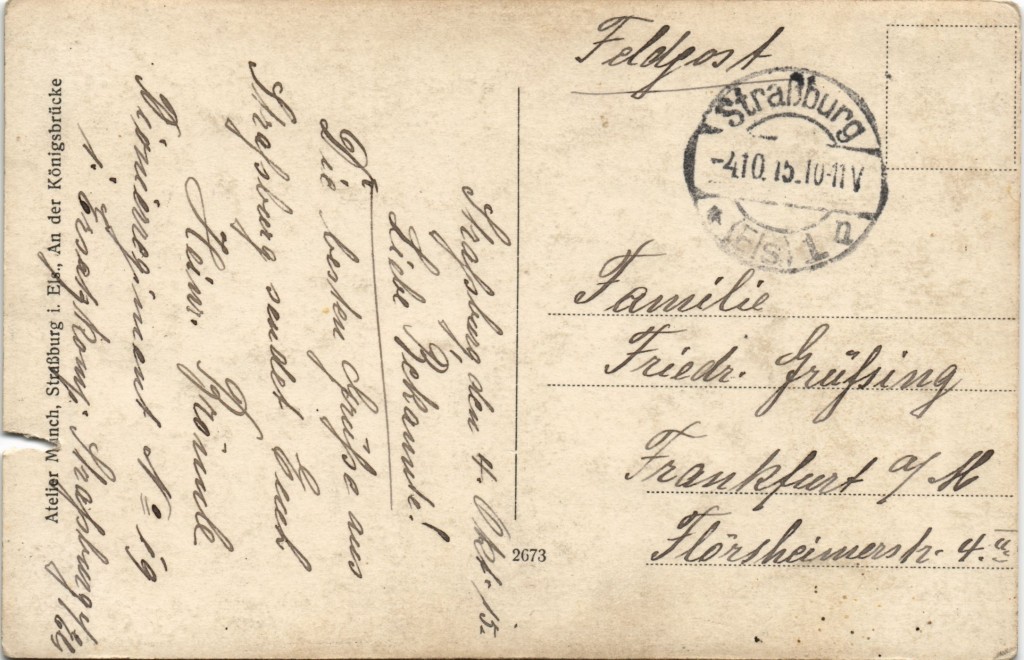 Feldpost
Straßburg
-4.10.15.10-11V
* (Els) 1 n
Familie
Friedr. Grüfsing
Frankfurt a/M
Flörsheimerstr. 4.
2673
Straßburg den 4. Okt. 15.
Liebe Bekannte!
Die besten Grüße aus
Straßburg sendet Euch
Heinr.
Pionierregiment No 19
1. Ersatzkomp. Straßburg i/
Atelier Munch, Straßburg i. Els., An der Königsbrücke